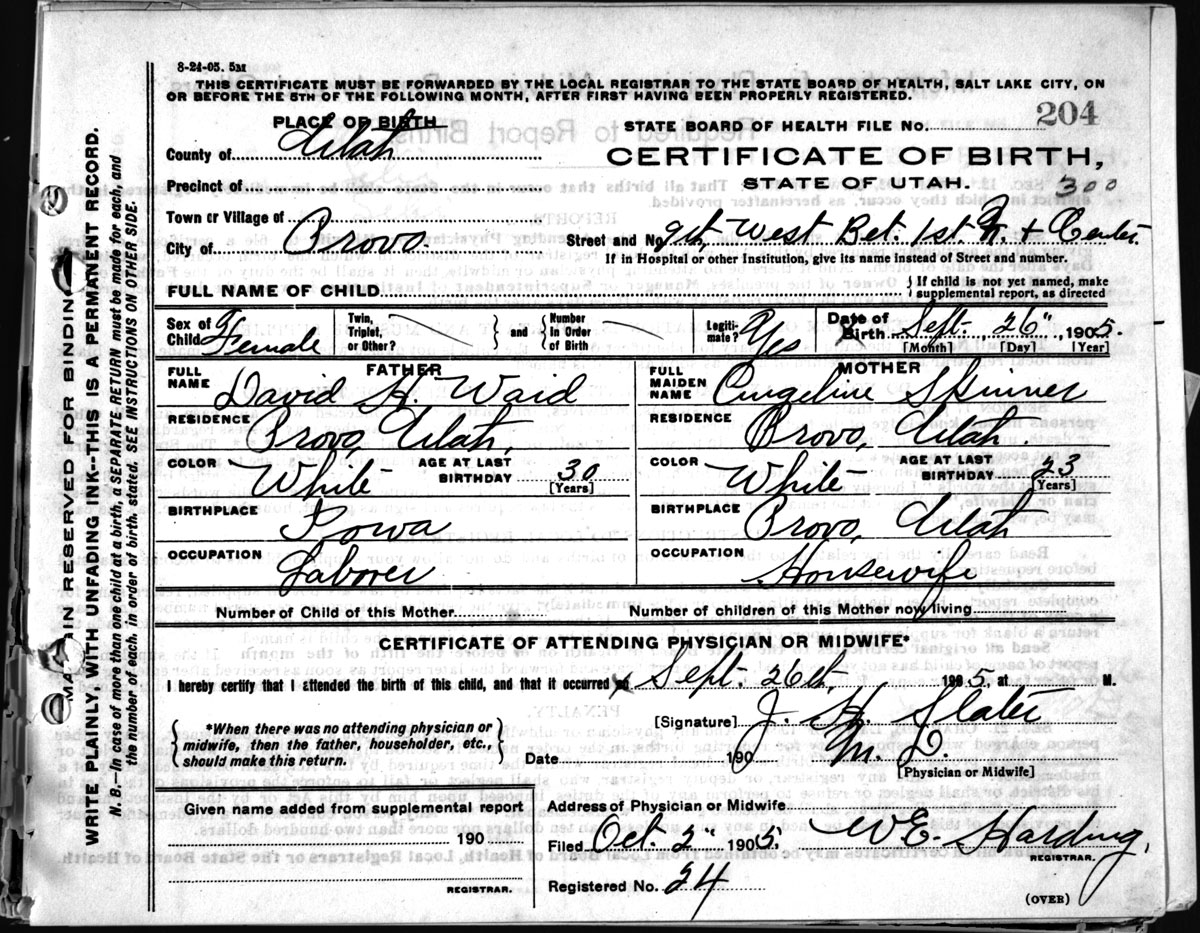 8-24-05. 5M
THIS CERTIFICATE MUST BE FORWARDED BY THE LOCAL REGISTRAR TO THE STATE BOARD OF HEALTH, SALT LAKE CITY, ON
OR BEFORE THE 5TH OF THE FOLLOWING MONTH, AFTER FIRST HAVING BEEN PROPERLY REGISTERED.
PLACE OF BIRTH
County of Utah
Precinct of
Town or Village of
City of Provo.
STATE BOARD OF HEALTH FILE No. 204
CERTIFICATE OF BIRTH,
STATE OF UTAH. 300
Street and No. 9th West Bet. 1st N. + Center.
If in Hospital or other Institution, give its name instead of Street and number.
FULL NAME OF CHILD
If child is not yet named, make
supplemental report, as directed
Sex of Child Female
Twin, Triplet, or Other?
Number in Order of Birth
Legitimate? Yes
Date of Birth Sept. 26", 1905.
[Month] [Day] [Year]
FATHER
FULL NAME David H. Waid
RESIDENCE Provo, Utah,
COLOR White
AGE AT LAST BIRTHDAY 30
[Years]
BIRTHPLACE Iowa
OCCUPATION Laborer
MOTHER
FULL MAIDEN NAME Angeline Skinner
RESIDENCE Provo, Utah
COLOR White
AGE AT LAST BIRTHDAY 23
[Years]
BIRTHPLACE Provo, Utah
OCCUPATION Housewife
Number of Child of this Mother
Number of children of this Mother now living
CERTIFICATE OF ATTENDING PHYSICIAN OR MIDWIFE*
I hereby certify that I attended the birth of this child, and that it occurred on Sept. 26th, 1905, at M.
*When there was no attending physician or
midwife, then the father, householder, etc.,
should make this return.
[Signature] J. H. Slater
Date 190 M. D.
[Physician or Midwife]
Given name added from supplemental report
190
REGISTRAR.
Address of Physician or Midwife
Filed Oct. 2" 1905, W E. Harding,
REGISTRAR.
Registered No. 24
(OVER)
MARGIN RESERVED FOR BINDING
WRITE PLAINLY, WITH UNFADING INK--THIS IS A PERMANENT RECORD.
N. B.—In case of more than one child at a birth, a SEPARATE RETURN must be made for each, and
the number of each, in order of birth, stated. SEE INSTRUCTIONS ON OTHER SIDE.